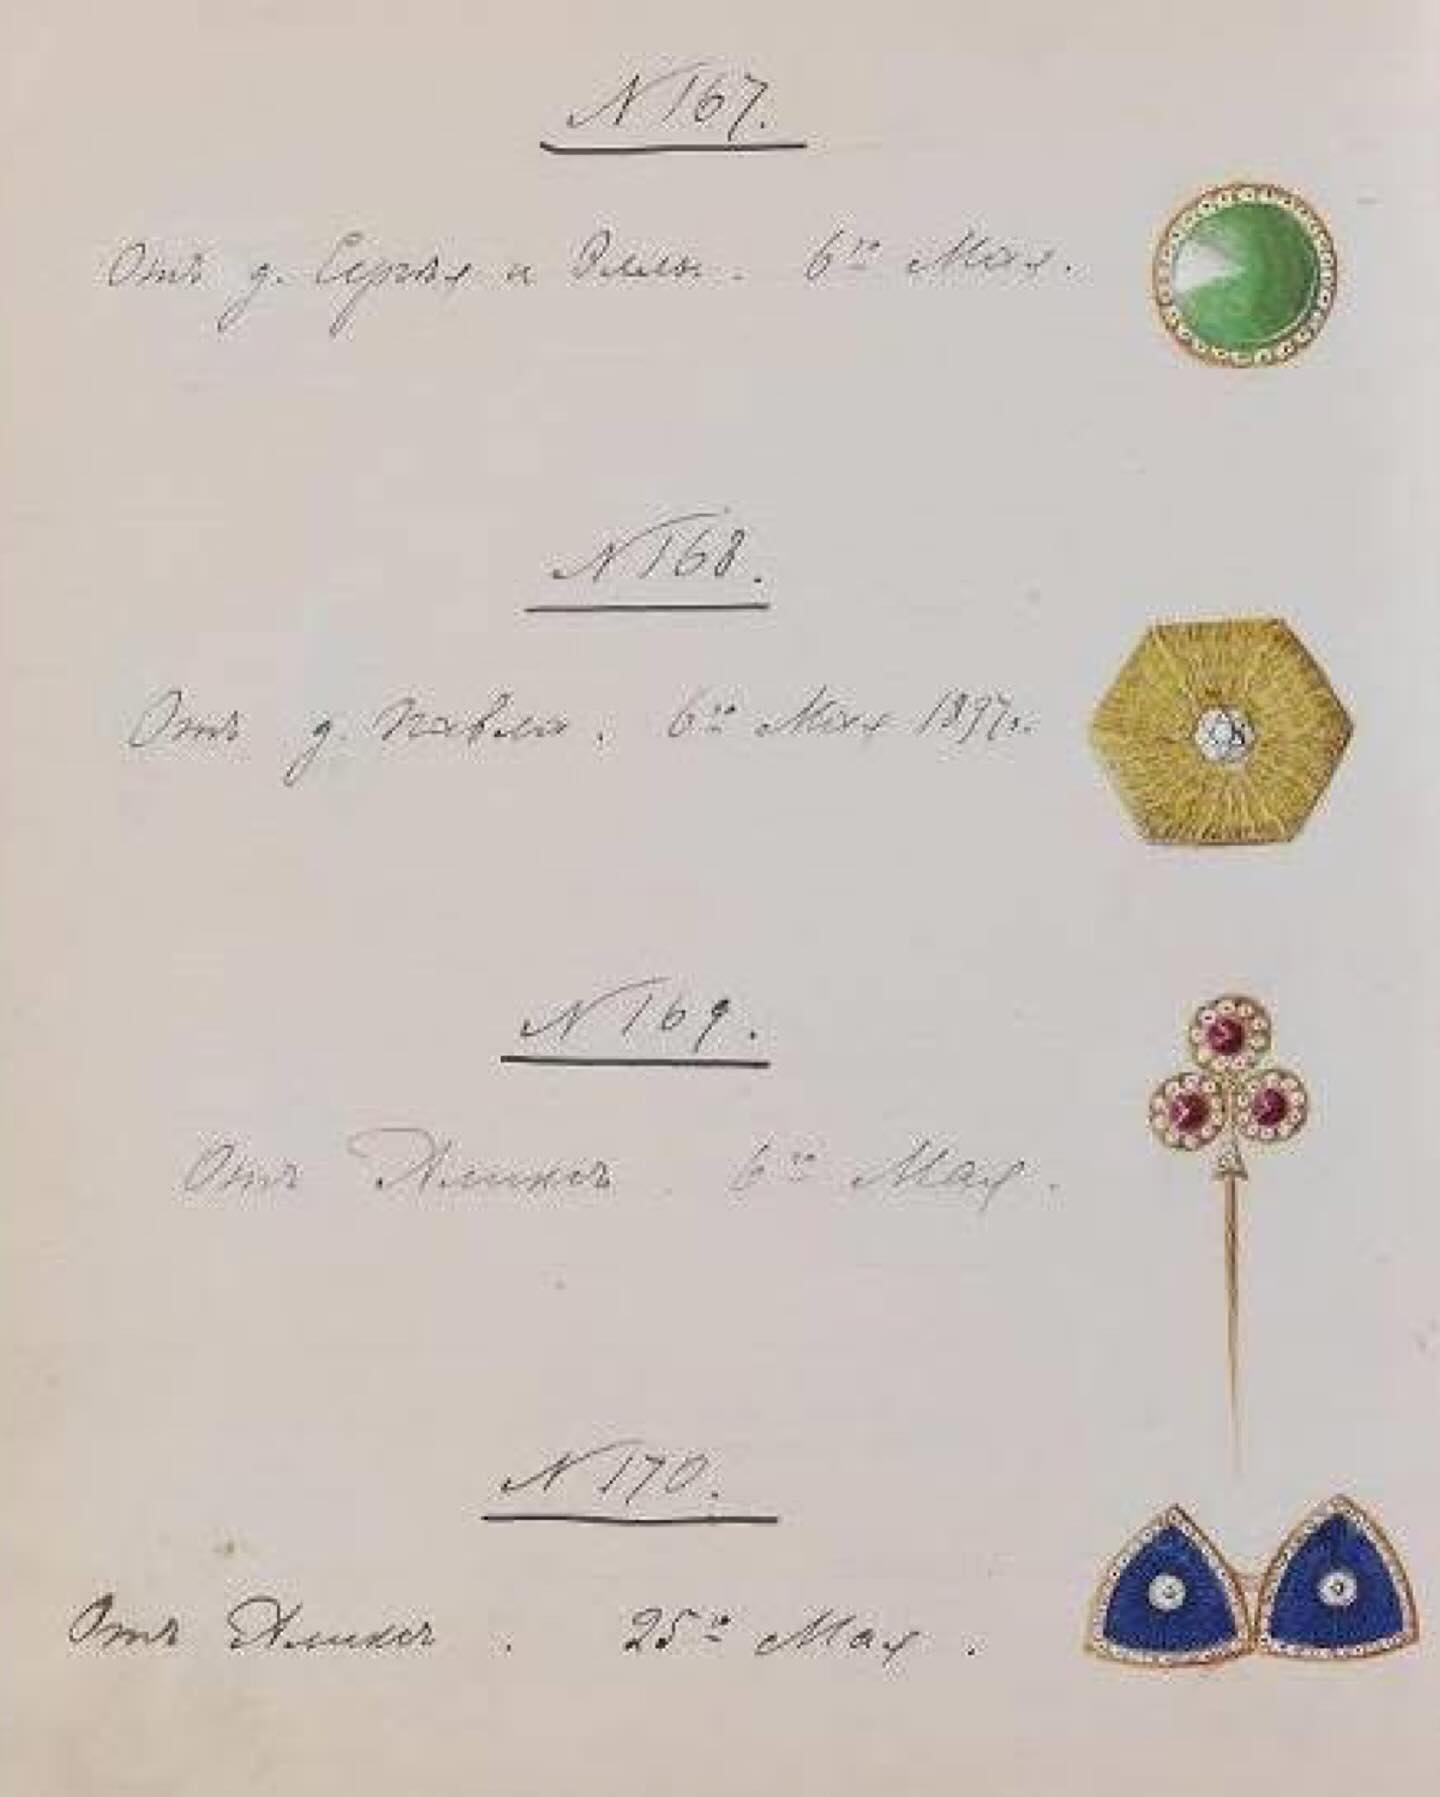 N 167.
Отъ д. Сергѣя и Эллы. 6го Мая.
N 168.
Отъ д. Павла. 6го Мая 1897г.
N 169.
Отъ Аликсъ. 6го Мая.
N 170.
Отъ Аликсъ. 25го Мая.